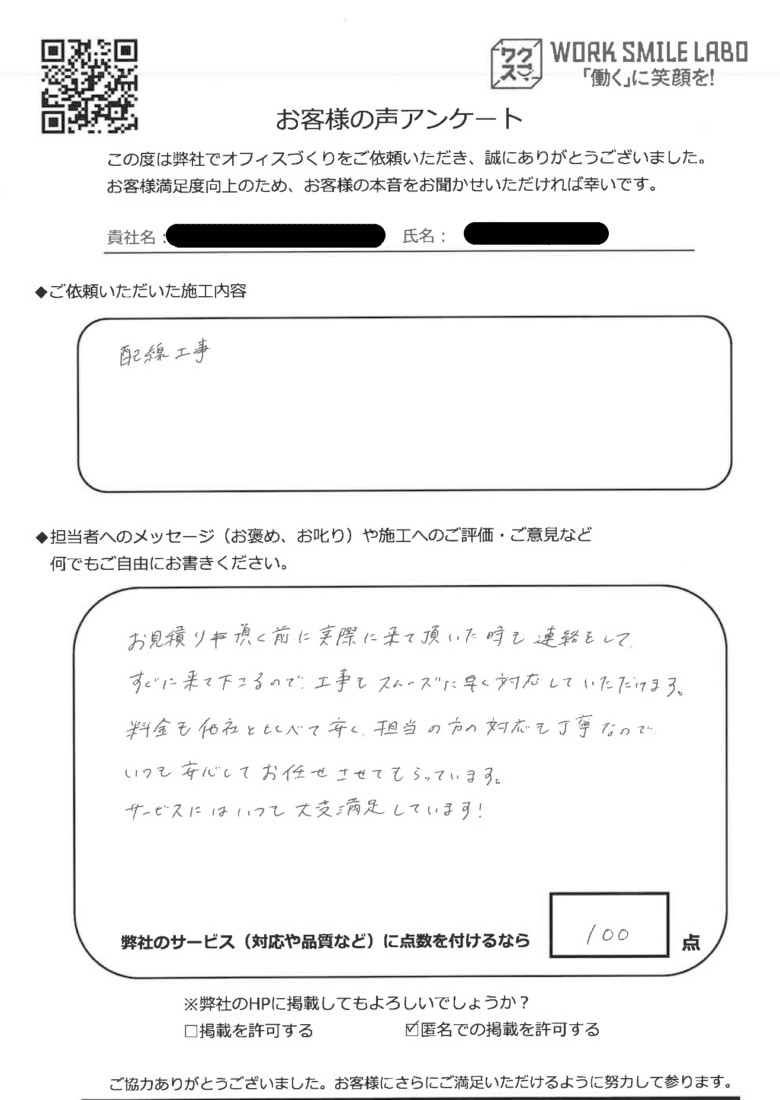 ワクスマ
WORK SMILE LABO
「働く」に笑顔を!
お客様の声アンケート
この度は弊社でオフィスづくりをご依頼いただき、誠にありがとうございました。
お客様満足度向上のため、お客様の本音をお聞かせいただければ幸いです。
貴社名: 氏名:
◆ご依頼いただいた施工内容
配線工事
◆担当者へのメッセージ(お褒め、お叱り)や施工へのご評価・ご意見など
何でもご自由にお書きください。
お見積りを頂く前に実際に来て頂いた時も連絡をして
すぐに来て下さるので、工事もスムーズに早く対応していただけます。
料金も他社とくらべて安く、担当の方の対応も丁寧なので
いつも安心してお任せさせてもらっています。
サービスにはいつも大変満足しています!
弊社のサービス(対応や品質など)に点数を付けるなら 100 点
※弊社のHPに掲載してもよろしいでしょうか?
□掲載を許可する ☑匿名での掲載を許可する
ご協力ありがとうございました。お客様にさらにご満足いただけるように努力して参ります。